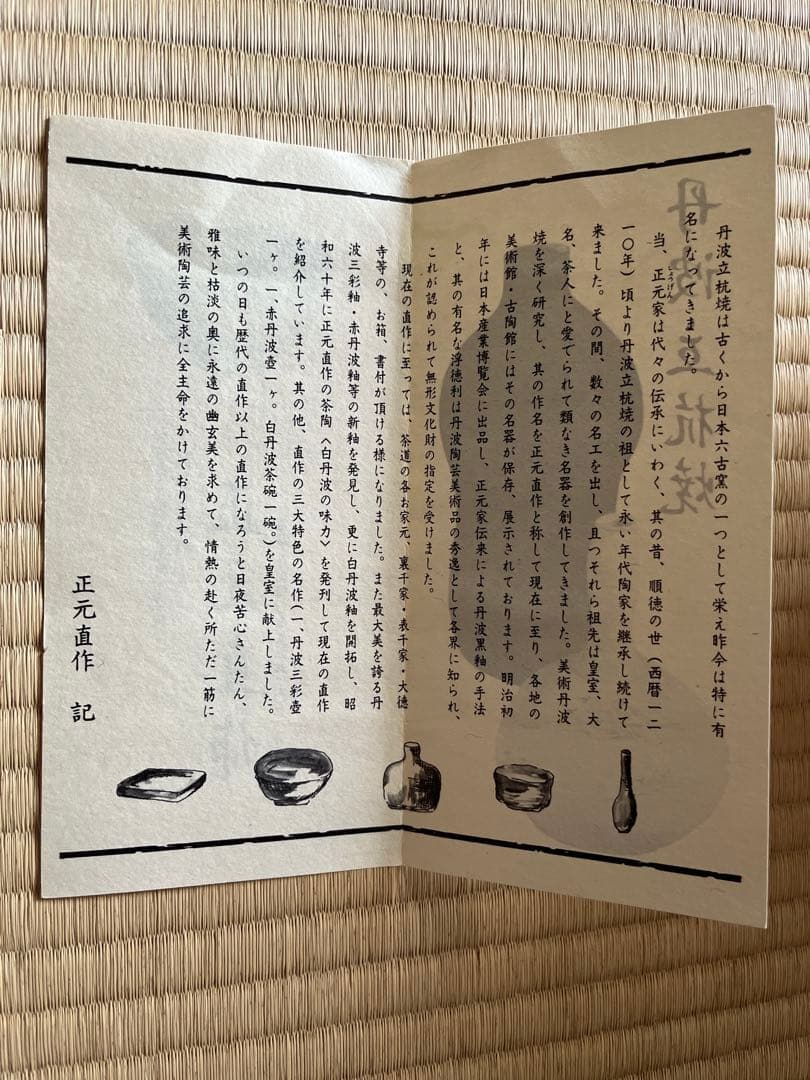 丹波立杭焼は古くから日本六古窯の一つとして栄え昨今は特に有
名になってきました。
当、正元家は代々の伝承にいわく、其の昔、順徳の世（西暦一二
しょうげん
一〇年）頃より丹波立杭焼の祖として永い年代陶家を継承し続けて
来ました。その間、数々の名工を出し、且つそれら祖先は皇室、大
名、茶人にと愛でられて類なき名器を創作してきました。美術丹波
焼を深く研究し、其の作名を正元直作と称して現在に至り、各地の
美術館・古陶館にはその名器が保存、展示されております。明治初
年には日本産業博覧会に出品し、正元家伝来による丹波黒釉の手法
と、其の有名な浮徳利は丹波陶芸美術品の秀逸として各界に知られ、
これが認められて無形文化財の指定を受けました。
現在の直作に至っては、茶道の各お家元、裏千家・表千家・大徳
寺等の、お箱、書付が頂ける様になりました。また最大美を誇る丹
波三彩釉・赤丹波釉等の新釉を発見し、更に白丹波釉を開拓し、昭
和六十年に正元直作の茶陶〈白丹波の味力〉を発刊して現在の直作
を紹介しています。其の他、直作の三大特色の名作（一、丹波三彩壺
一ヶ。一、赤丹波壺一ヶ。白丹波茶碗一碗。）を皇室に献上しました。
いつの日も歴代の直作以上の直作になろうと日夜苦心さんたん、
雅味と枯淡の奥に永遠の幽玄美を求めて、情熱の赴く所ただ一筋に
美術陶芸の追求に全主命をかけております。
正元直作　記
丹波立杭焼